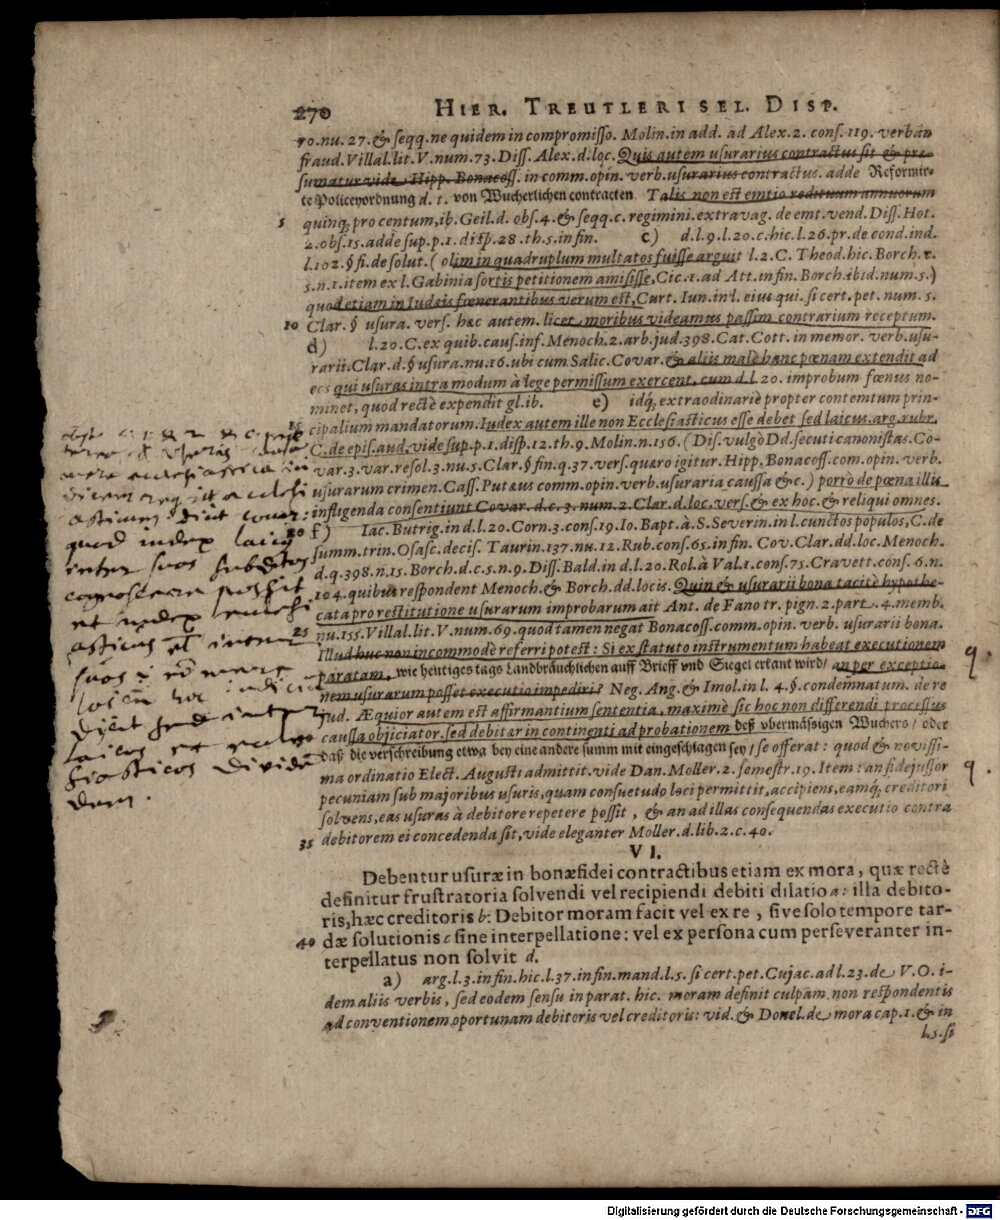 270 HIER. TREUTLERI SEL. DISP.
70. nu. 27. & seqq. ne quidem in compromisso. Molin. in add. ad Alex. 2. cons. 119. verb. an
fraud. Villal. lit. V. num. 73. Diss. Alex. d. loc. Quis autem usurarius contractus sit & præ-
sumatur vide Hipp. Bonacoss. in comm. opin. verb. usurarius contractus. adde Reformir-
te Policeyordnung d. t. von Wucherlichen contracten Talis non est emtio redituum annuorum
5 quinq; pro centum, ib. Geil. d. obs. 4. & seqq. c. regimini. extravag. de emt. vend. Diss. Hot.
2. obs. 15. adde sup. p. 1. disp. 28. th. 5. in fin. c) d. l. 9. l. 20. c. hic. l. 26. pr. de cond. ind.
l. 102. § fi. de solut. (olim in quadruplum multatos fuisse arguit l. 2. C. Theod. hic. Borch. c.
5. n. 1. item ex l. Gabinia sortis petitionem amisisse, Cic. 1. ad Att. in fin. Borch. ibid. num. 5.)
quod etiam in Iudæis fœnerantibus verum est, Curt. Iun. in l. eius qui. si cert. pet. num. 5.
10 Clar. § usura. vers. hæc autem. licet moribus videamus passim contrarium receptum.
d) l. 20. C. ex quib. caus. inf. Menoch. 2. arb. jud. 398. Cat. Cott. in memor. verb. usu-
rarii. Clar. d. § usura. nu. 16. ubi cum Salic. Covar. & aliis malè hanc pœnam extendit ad
eos qui usuras intra modum à lege permissum exercent, cum d. l. 20. improbum fœnus no-
minet, quod rectè expendit gl. ib. e) idq; extraordinariè propter contemtum prin-
15 cipalium mandatorum. Iudex autem ille non Ecclesiasticus esse debet sed laicus. arg. rubr.
C. de epis. aud. vide sup. p. 1. disp. 12. th. 9. Molin. n. 156. (Dis. vulgò Dd. secuti canonistas. Co-
var. 3. var. resol. 3. nu. 5. Clar. § fin. q. 37. vers. quæro igitur. Hipp. Bonacoss. com. opin. verb.
usurarum crimen. Cass. Putæus comm. opin. verb. usuraria caussa &c.) porrò de pœna illis
infligenda consentiunt Covar. d. c. 3. num. 2. Clar. d. loc. vers. & ex hoc. & reliqui omnes.
20 f) Iac. Butrig. in d. l. 20. Corn. 3. cons. 19. Io. Bapt. à S. Severin. in l. cunctos populos, C. de
summ. trin. Osasc. decis. Taurin. 137. nu. 12. Rub. cons. 65. in fin. Cov. Clar. dd. loc. Menoch.
d. q. 398. n. 15. Borch. d. c. 5. n. 9. Diss. Bald. in d. l. 20. Rol. à Val. 1. cons. 75. Cravett. cons. 6. n.
104. quibus respondent Menoch. & Borch. dd. locis. Quin & usurarii bona tacitè hypothe-
cata pro restitutione usurarum improbarum ait Ant. de Fano tr. pign. 2. part. 4. memb.
25 nu. 155. Villal. lit. V. num. 69. quod tamen negat Bonacoss. comm. opin. verb. usurarii bona.
Illud huc non incommodè referri potest: Si ex statuto instrumentum habeat executionem
paratam, wie heutiges tags Landbräuchlichen auff Brieff vnd Siegel erkant wird / an per exceptio-
nem usurarum posset executio impediri? Neg. Ang. & Imol. in l. 4. §. condemnatum. de re
jud. Æquior autem est affirmantium sententia, maximè sic hoc non differendi processus
caussa objiciator, sed debitor in continenti ad probationem deß vbermässigen Wuchers / oder
daß die verschreibung etwa bey eine andere summ mit eingeschlagen sey / se offerat: quod & novissi-
ma ordinatio Elect. Augusti admittit. vide Dan. Moller. 2. semestr. 19. Item: an fidejussor
pecuniam sub majoribus usuris, quam consuetudo loci permittit, accipiens, eamq; creditori
solvens, eas usuras à debitore repetere possit, & an ad illas consequendas executio contra
35 debitorem ei concedenda sit, vide eleganter Moller. d. lib. 2. c. 40.
VI.
Debentur usuræ in bonæ fidei contractibus etiam ex mora, quæ rectè
definitur frustratoria solvendi vel recipiendi debiti dilatio a: illa debito-
ris, hæc creditoris b: Debitor moram facit vel ex re, sive solo tempore tar-
40 dæ solutionis c sine interpellatione: vel ex persona cum perseveranter in-
terpellatus non solvit d.
a) arg. l. 3. in fin. hic. l. 37. in fin. mand. l. 5. si cert. pet. Cujac. ad l. 23. de V. O. i-
dem aliis verbis, sed eodem sensu in parat. hic. moram definit culpam non respondentis
ad conventionem oportunam debitoris vel creditoris: vid. & Donel. de mora cap. 1. & in
l. 5. si
quod iudex laicus
inter suos subditos
cognoscere possit
et iudex ecclesi
asticus
suos
laicos et eccle
siasticos divide
dem.
q.
q.
Digitalisierung gefördert durch die Deutsche Forschungsgemeinschaft - DFG